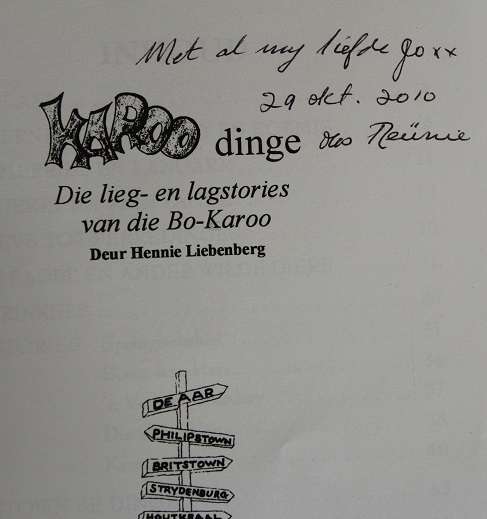 Met al my liefde Jo xx
29 okt. 2010
das Reünie
KAROO dinge
Die lieg- en lagstories
van die Bo-Karoo
Deur Hennie Liebenberg
DE AAR
PHILIPSTOWN
BRITSTOWN
STRYDENBURG
HOUTKRAAL